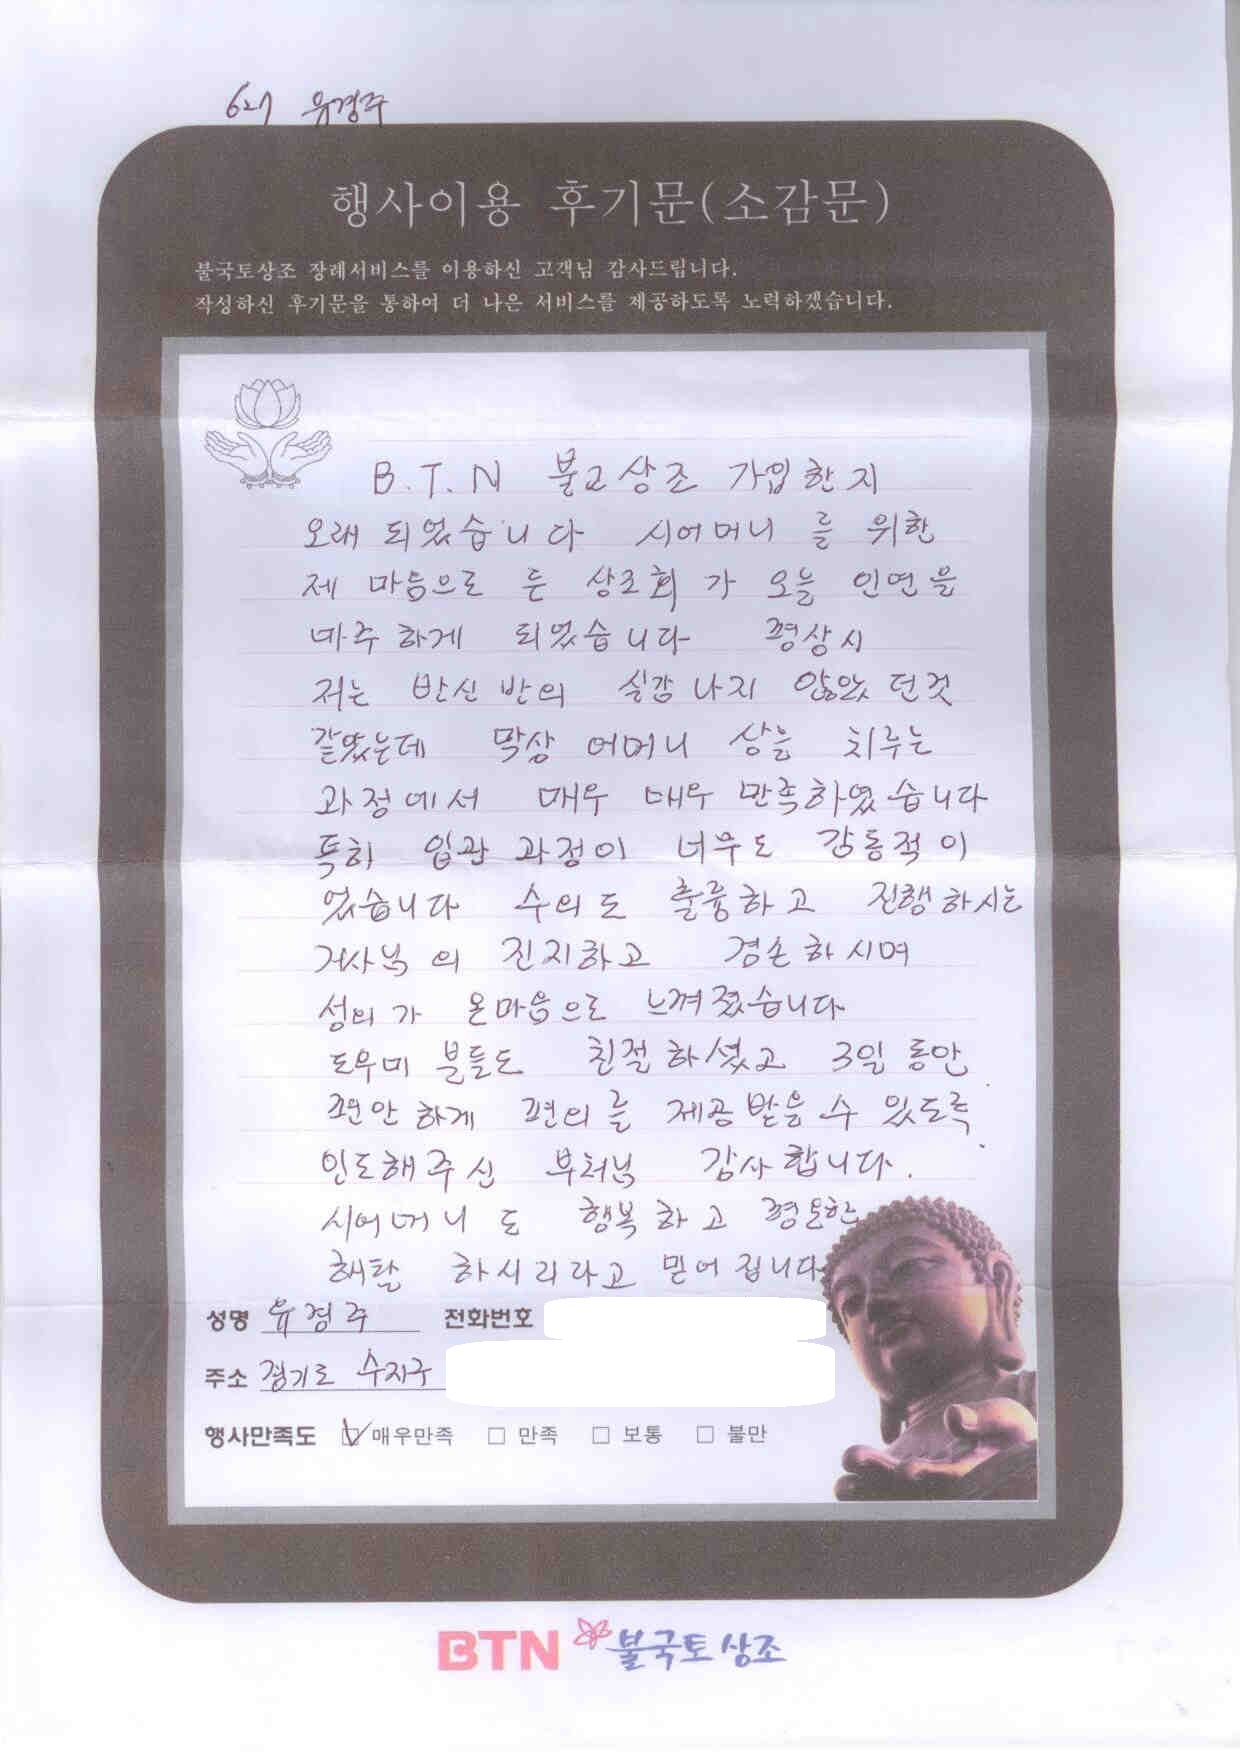 627 유경주
행사이용 후기문(소감문)
불국토상조 장례서비스를 이용하신 고객님 감사드립니다.
작성하신 후기문을 통하여 더 나은 서비스를 제공하도록 노력하겠습니다.
B.T.N 불교상조 가입한지
오래 되었습니다 시어머니를 위한
제 마음으로 든 상조회가 오늘 인연을
마주하게 되었습니다 평상시
저는 반신반의 실감나지 않았던것
같았는데 막상 어머니 상을 치루는
과정에서 매우 매우 만족하였습니다
특히 입관 과정이 너무도 감동적이
었습니다 수의도 훌륭하고 진행하시는
거사님의 진지하고 겸손하시며
성의가 온마음으로 느껴졌습니다
도우미 분들도 친절하셨고 3일 동안
편안하게 편의를 제공받을 수 있도록
인도해주신 부처님 감사합니다.
시어머니도 행복하고 평온한
해탈 하시리라고 믿어집니다
성명 유경주 전화번호
주소 경기도 수지구
행사만족도 매우만족 만족 보통 불만
BTN 불국토상조